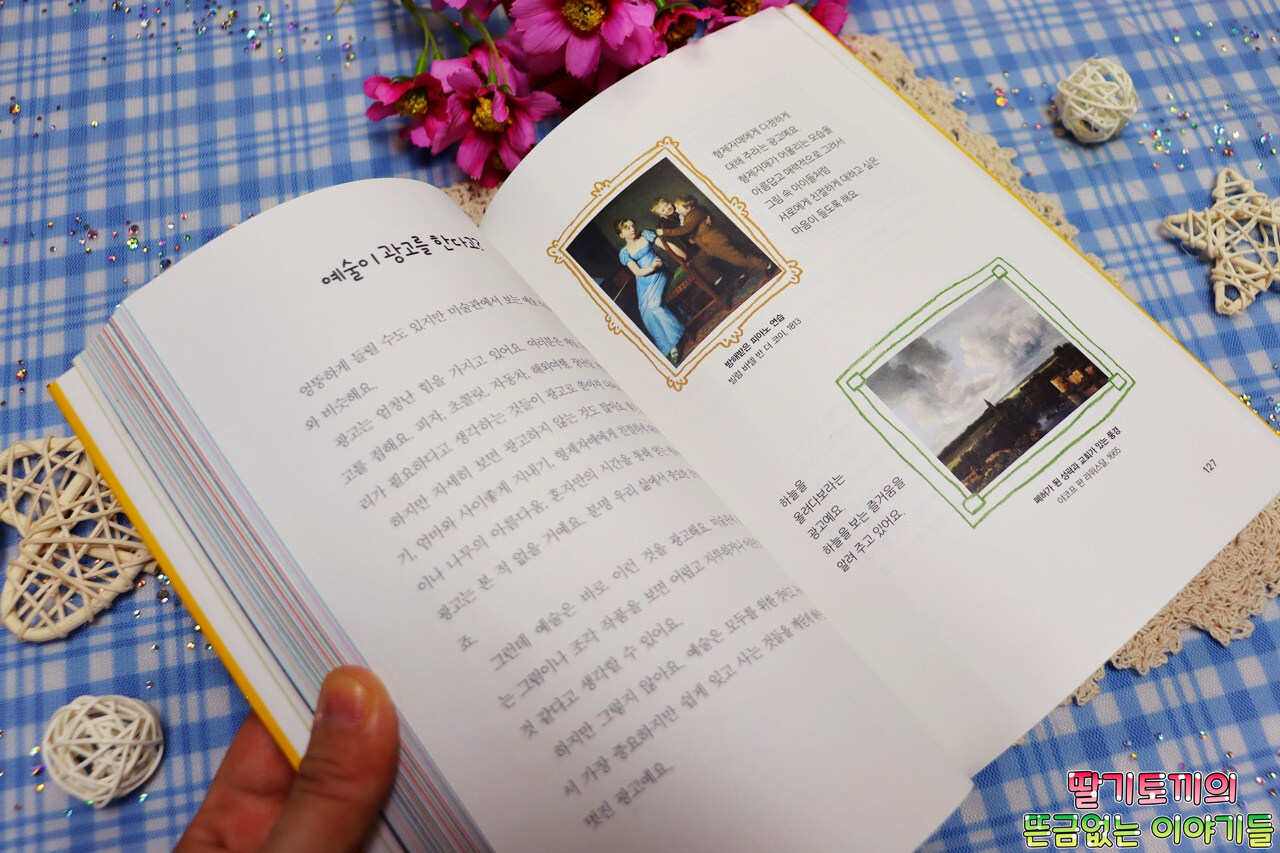 예술이 광고를 한다고?
엉뚱하게 들릴 수도 있지만 미술관에서 보는
와 비슷해요.
광고는 엄청난 힘을 가지고 있어요. 여러분은
고를 접해요. 피자, 초콜릿, 자동차, 해외여행,
리가 필요하다고 생각하는 것들이 광고로
하지만 자세히 보면 광고하지 않는 것도 많아요.
기, 엄마와 사이좋게 지내기, 형제자매에게
이나 나무의 아름다움, 혼자만의 시간을 통해
광고는 본 적 없을 거예요. 분명 우리 삶에서
죠
그런데 예술은 바로 이런 것을 광고해요.
는 그림이나 조각 작품을 보면 어렵고
것 같다고 생각할 수 있어요.
하지만 그렇지 않아요. 예술은 모두를 위한
서 가장 중요하지만 쉽게 잊고 사는 것들을
멋진 광고예요.
형제자매에게 다정하게
대해 주라는 광고예요.
형제자매가 어울리는 모습을
아름답고 매력적으로 그려서
그림 속 아이들처럼
서로에게 친절하게 대하고 싶은
마음이 들도록 해요.
방해받은 피아노 연습
빌럼 바첼 반 더 코이, 1813
하늘을
올려다보라는
광고예요.
하늘을 보는 즐거움을
알려 주고 있어요.
폐허가 된 성곽과 교회가 있는 풍경
야코프 판 라위스달, 1665
127
딸기토끼의
뜬금없는 이야기들